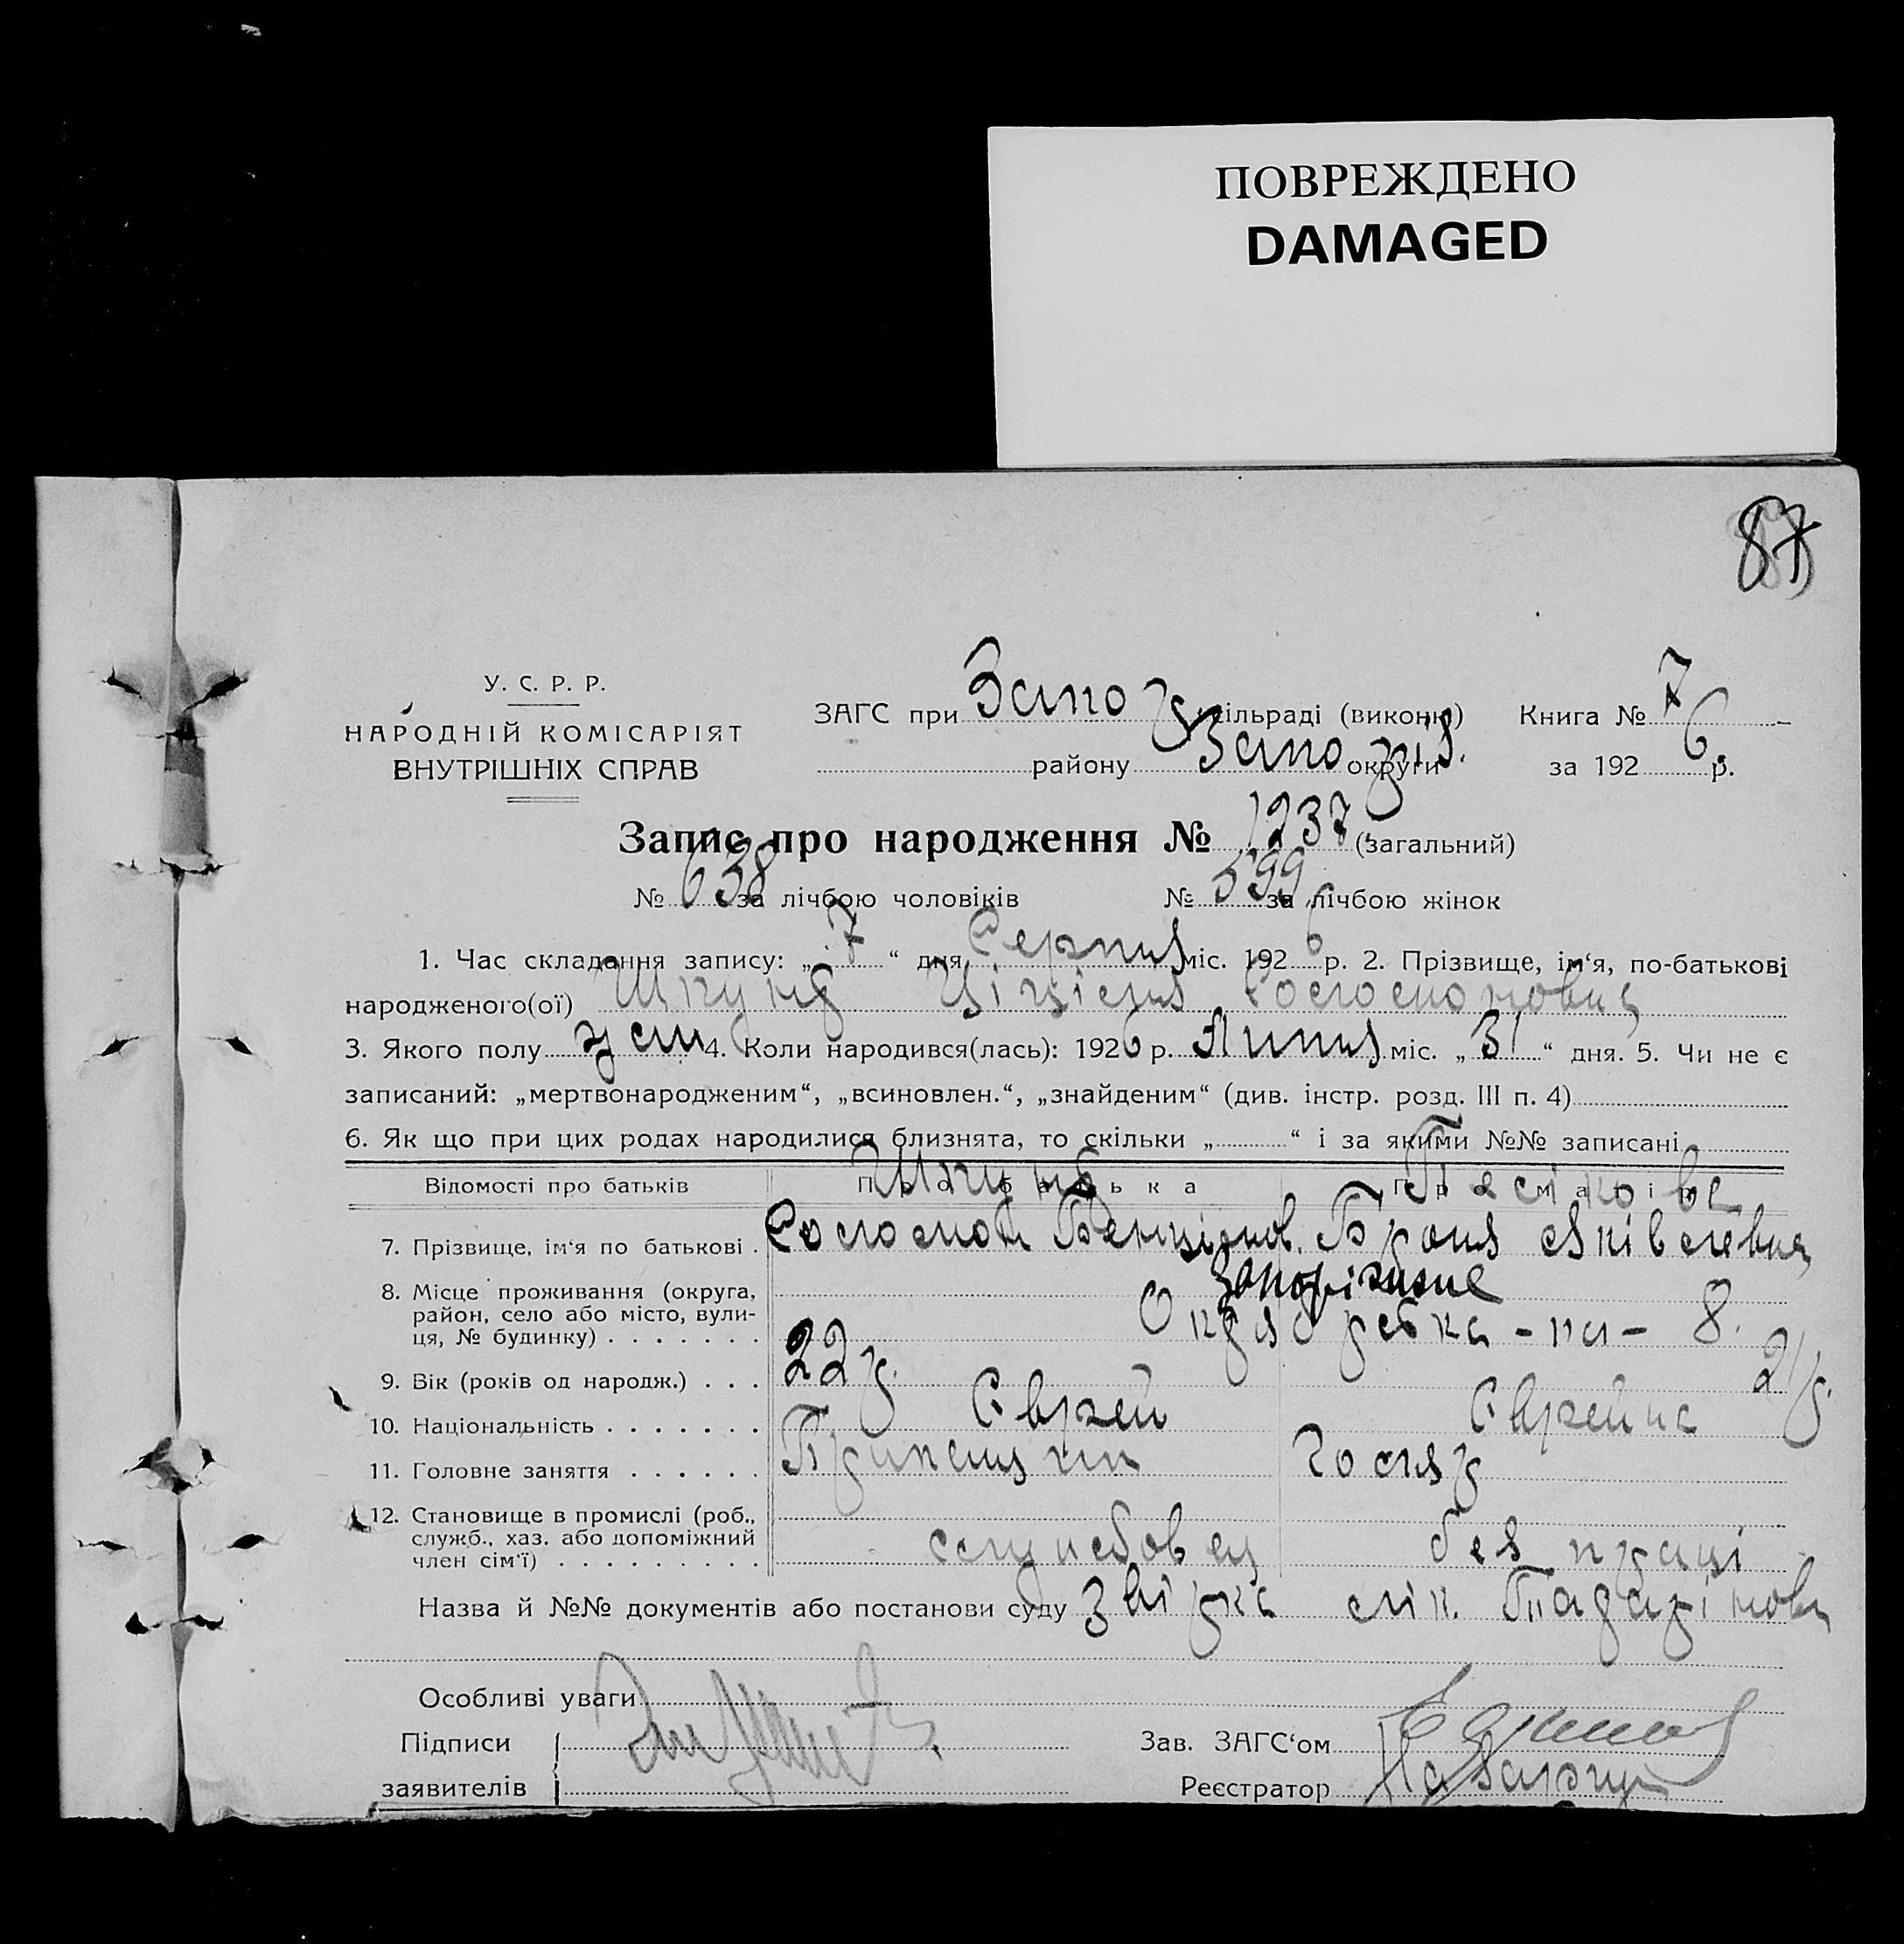 ПОВРЕЖДЕНО
DAMAGED
87
У. С. Р. Р.
НАРОДНІЙ КОМІСАРІЯТ
ВНУТРІШНІХ СПРАВ
ЗАГС при Запо сільраді (виконк) Книга № 7
району Запоріз. округи за 1926 р.
Запис про народження № 1237 (загальний)
№ 638 за лічбою чоловіків № 599 за лічбою жінок
1. Час складання запису: „7“ дня Серпня міс. 1926 р. 2. Прізвище, ім‘я, по-батькові
народженого(ої) Соломоновна
3. Якого полу жен 4. Коли народився(лась): 1926 р. Липня міс. „31“ дня. 5. Чи не є
записаний: „мертвонародженим“, „всиновлен.“, „знайденим“ (див. інстр. розд. III п. 4)
6. Як що при цих родах народилися близнята, то скільки „ “ і за якими №№ записані
Відомості про батьків Про батька Про матір
7. Прізвище, ім‘я по батькові . Соломон Бенціонов. Броня Яківлевна
8. Місце проживання (округа, Запоріжжя
район, село або місто, вули-
ця, № будинку) . . . . . . . 8.
9. Вік (років од народж.) . . . 22 р. 21 р.
10. Національність . . . . . . . Єврей Єврейка
11. Головне заняття . . . . . .
12. Становище в промислі (роб.,
служб., хаз. або допоміжний
член сім‘ї) . . . . . . . . . службовец без праці
Назва й №№ документів або постанови суду звірка лік.
Особливі уваги
Підписи
заявителів
Зав. ЗАГС‘ом
Реєстратор